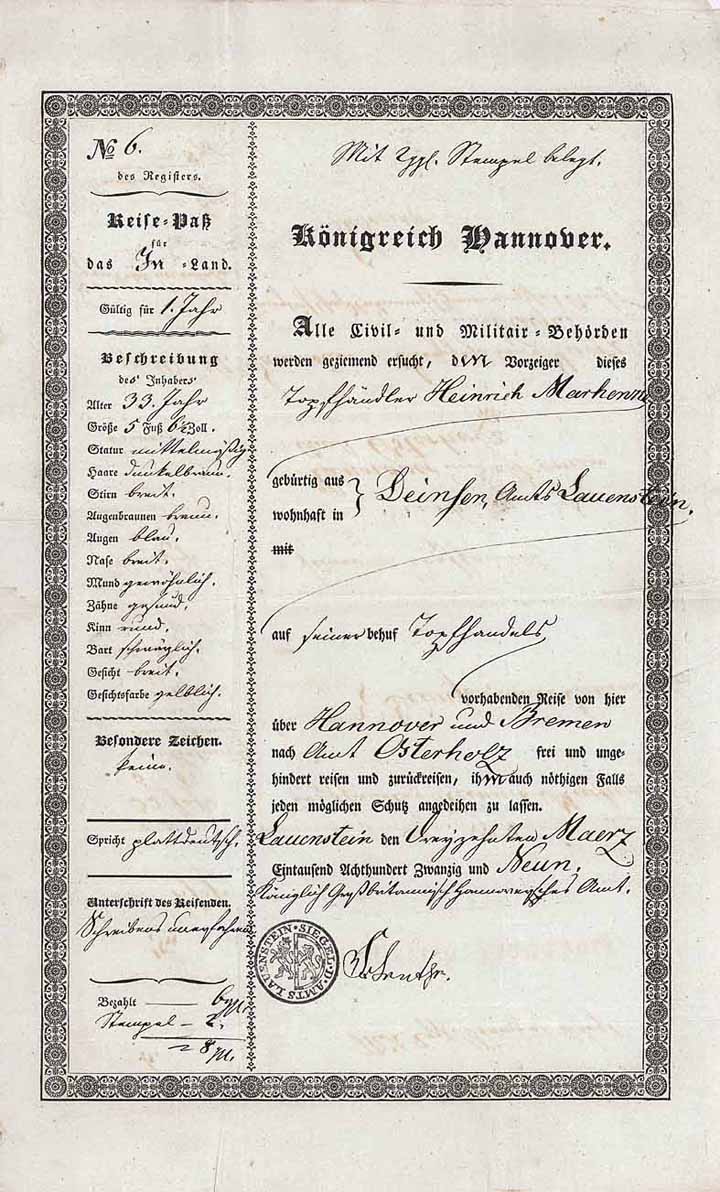 No 6.
des Registers.
Reise-Paß
für
das In-Land.
Gültig für 1. Jahr
Beschreibung
des Inhabers
Alter 33. Jahr
Größe 5 Fuß 6½ Zoll.
Statur mittelmäßig
Haare dunkelbraun.
Stirn breit.
Augenbraunen braun.
Augen blau.
Nase breit.
Mund gewöhnlich.
Zähne gesund.
Kinn rund.
Bart schwärzlich.
Gesicht breit.
Gesichtsfarbe gelblich.
Besondere Zeichen.
keine.
Spricht plattdeutsch.
Unterschrift des Reisenden.
Schreibens unerfahren
Bezahlt 6
Stempel – 2.
8
Mit Stempel belegt.
Königreich Hannover.
Alle Civil- und Militair-Behörden
werden geziemend ersucht, dem Vorzeiger dieses
Topfhändler Heinrich
gebürtig aus
wohnhaft in
Deinsen, Amts Lauenstein.
mit
auf seiner behuf Topfhandels
vorhabenden Reise von hier
über Hannover und Bremen
nach Amt Osterholz frei und unge-
hindert reisen und zurückreisen, ihm auch nöthigen Falls
jeden möglichen Schutz angedeihen zu lassen.
Lauenstein den Dreyzehnten Maerz
Eintausend Achthundert Zwanzig und Neun.
Königlich Großbritannisch Hannoversches Amt.
SIEGEL D. AMTS LAUENSTEIN